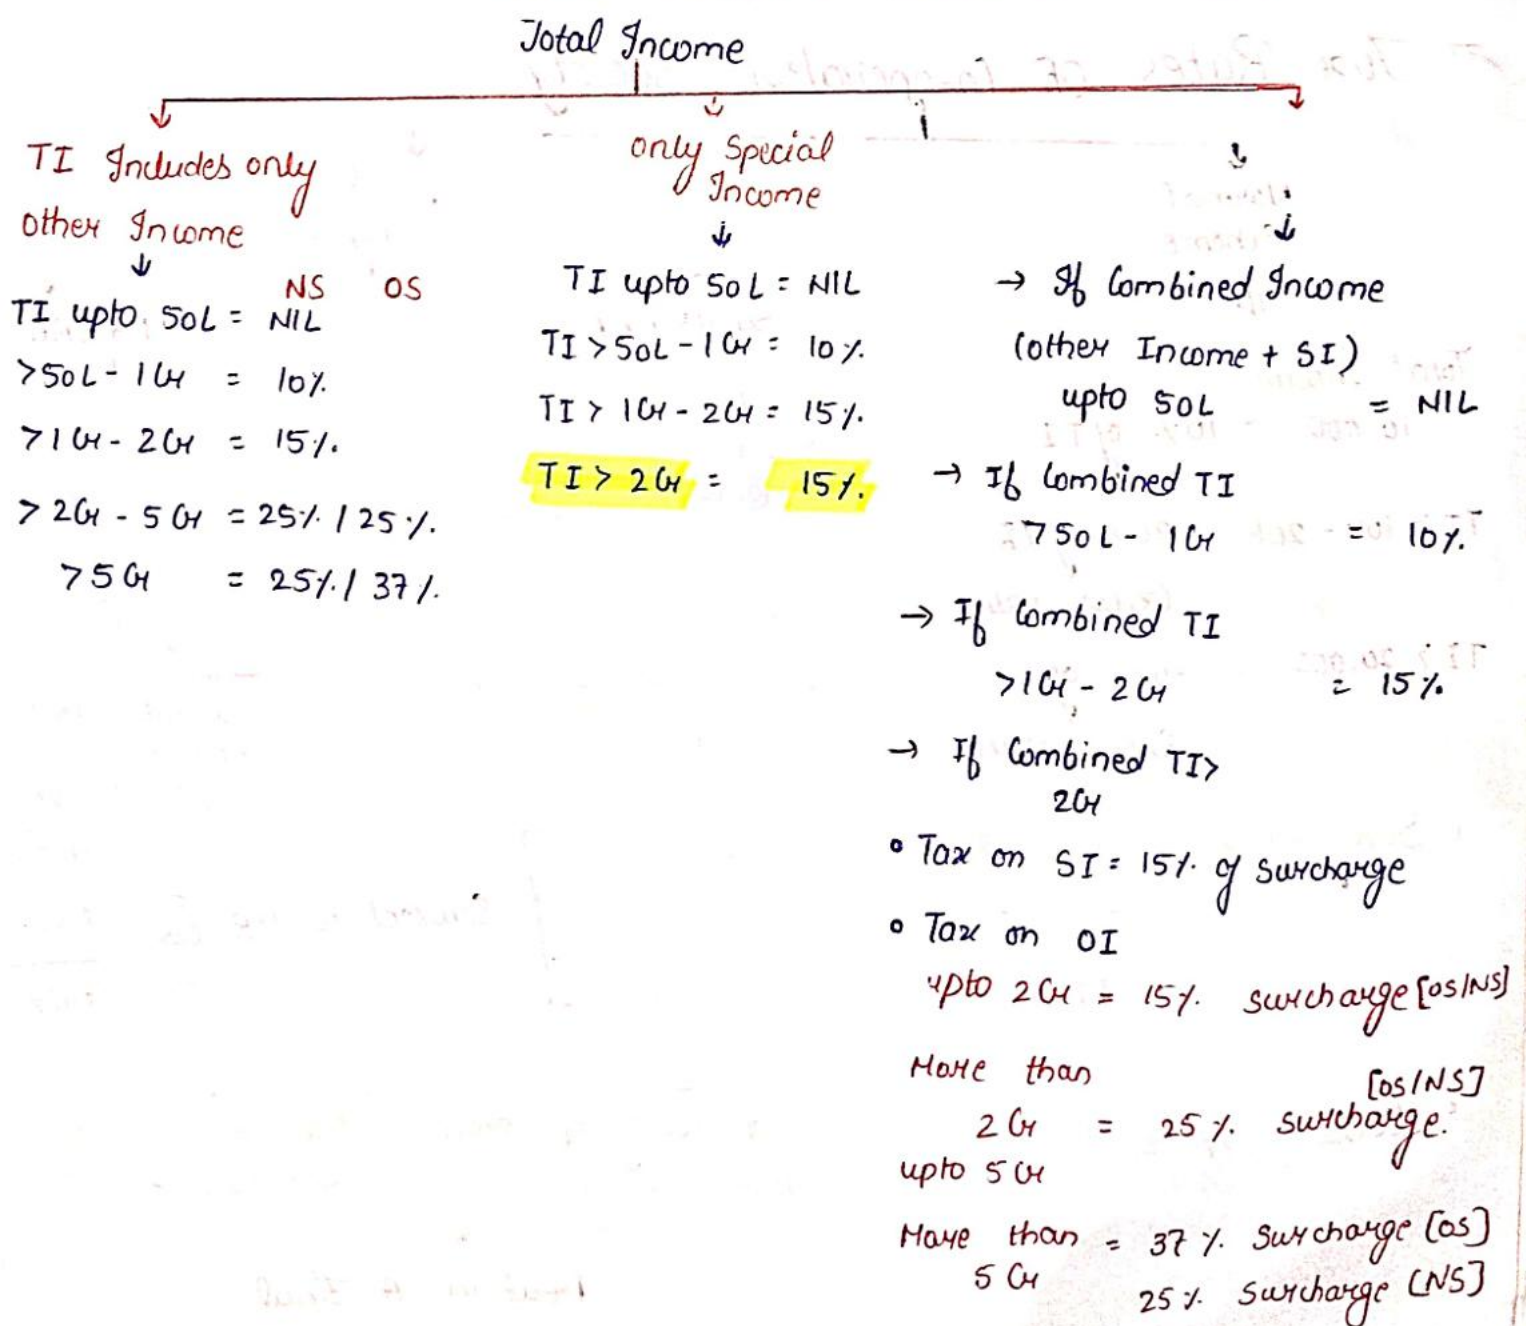 Total Income
TI Includes only
other Income
NS OS
TI upto 50L = NIL
>50L - 1Cr = 10%
>1Cr - 2Cr = 15%.
>2Cr - 5Cr = 25% / 25%.
>5Cr = 25% / 37%.
only Special
Income
TI upto 50L = NIL
TI >50L - 1Cr = 10%.
TI > 1Cr - 2Cr = 15%.
TI > 2Cr = 15%.
→ If Combined Income
(other Income + SI)
upto 50L = NIL
→ If Combined TI
>50L - 1Cr = 10%.
→ If Combined TI
>1Cr - 2Cr = 15%.
→ If Combined TI>
2Cr
• Tax on SI = 15% of surcharge
• Tax on OI
upto 2Cr = 15%. surcharge [OS/NS]
More than [OS/NS]
2Cr = 25%. surcharge.
upto 5Cr
More than = 37%. Surcharge [OS]
5Cr 25%. Surcharge (NS]